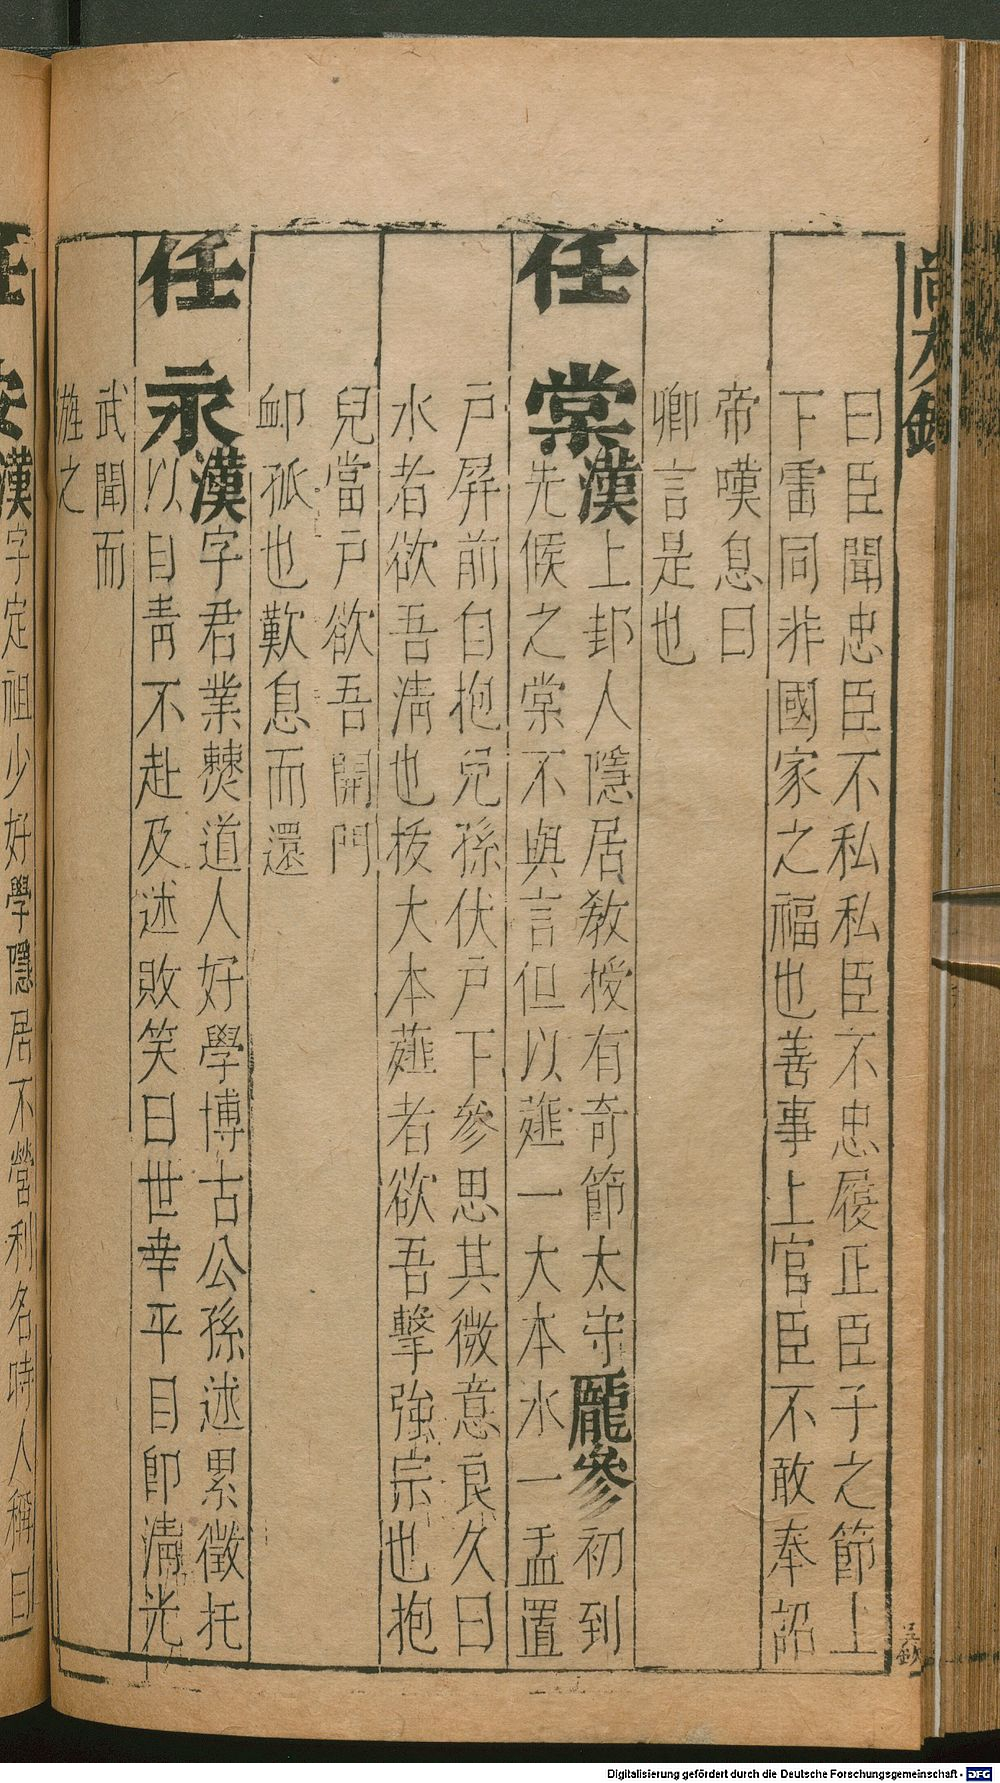 曰臣聞忠臣不私私臣不忠履正臣子之節上
下雷同非國家之福也善事上官臣不敢奉詔
帝嘆息曰
卿言是也
任棠漢上邽人隱居教授有奇節太守龐參初到
先候之棠不與言但以薤一大本水一盂置
戶屛前自抱兒孫伏戶下參思其微意良久曰
水者欲吾淸也拔大本薤者欲吾擊強宗也抱
兒當戶欲吾開門
卹孤也歎息而還
任永漢字君業僰道人好學博古公孫述累徵托
以目靑不赴及述敗笑曰世幸平目卽淸光
武聞而
旌之
漢字定祖少好學隱居不營利名時人稱曰
吳欽
Digitalisierung gefördert durch die Deutsche Forschungsgemeinschaft - DFG